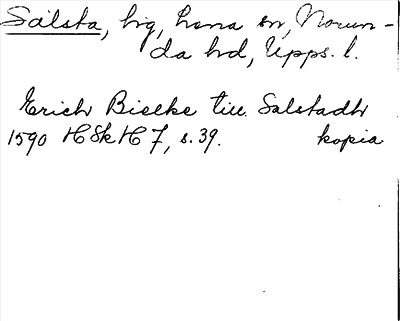 Salsta, hg, Lena sn, Norun-
da hd, Upps. l.
Erich Bielke till Salstadh
1590 HSkH 7, s. 39. kopia